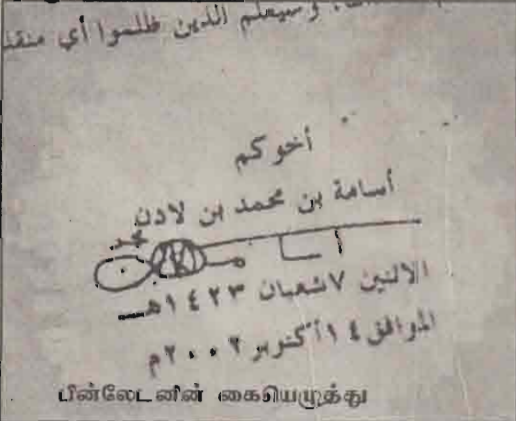 وسيعلم الذين ظلموا أي
أخوكم
أسامة بن محمد بن لادن
الاثنين ٧ شعبان ١٤٢٣هـ
الموافق ١٤ أكتوبر ٢٠٠٢م
பின்லேடனின் கையெழுத்து